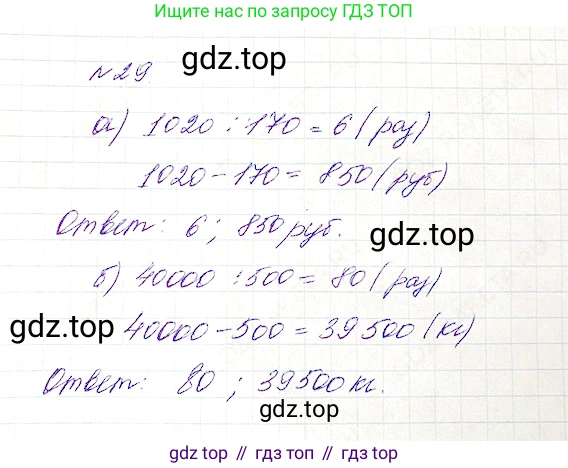 Ищите нас по запросу ГДЗ ТОП
№29 gdz.top
а) 1020 : 170 = 6 (раз)
1020 - 170 = 850 (руб)
Ответ: 6 ; 850 руб.
gdz.top
б) 40000 : 500 = 80 (раз)
gdz.top 40000 - 500 = 39500 (кг)
Ответ: 80 ; 39500 кг.
gdz.top
gdz.top // гдз топ // gdz.top